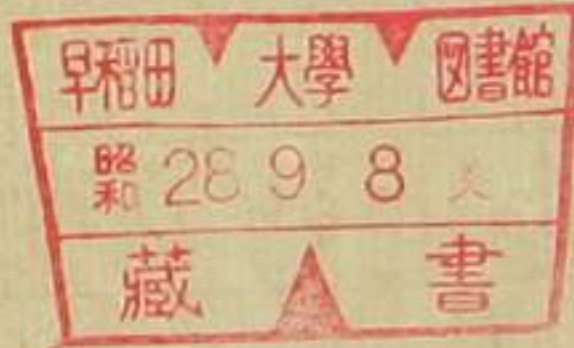 早稲田大學図書館
昭和 28 9 8
藏書